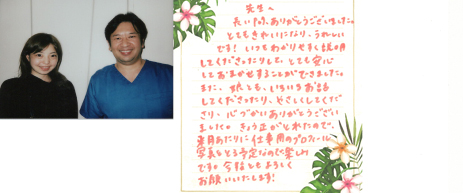 先生へ
長い間、ありがとうございました。
とてもきれいになり、うれしい
です！いつもわかりやすく説明
してくださったりして、とても安心
しておまかせすることができました。
また、娘とも、いろいろお話
してくださったり、やさしくしてくだ
さり、心づかいありがとうござい
ました。きょう正がとれたので、
来月あたりに仕事用のプロフィール
写真をとる予定なので楽しみ
です。今後ともよろしく
お願いいたします！